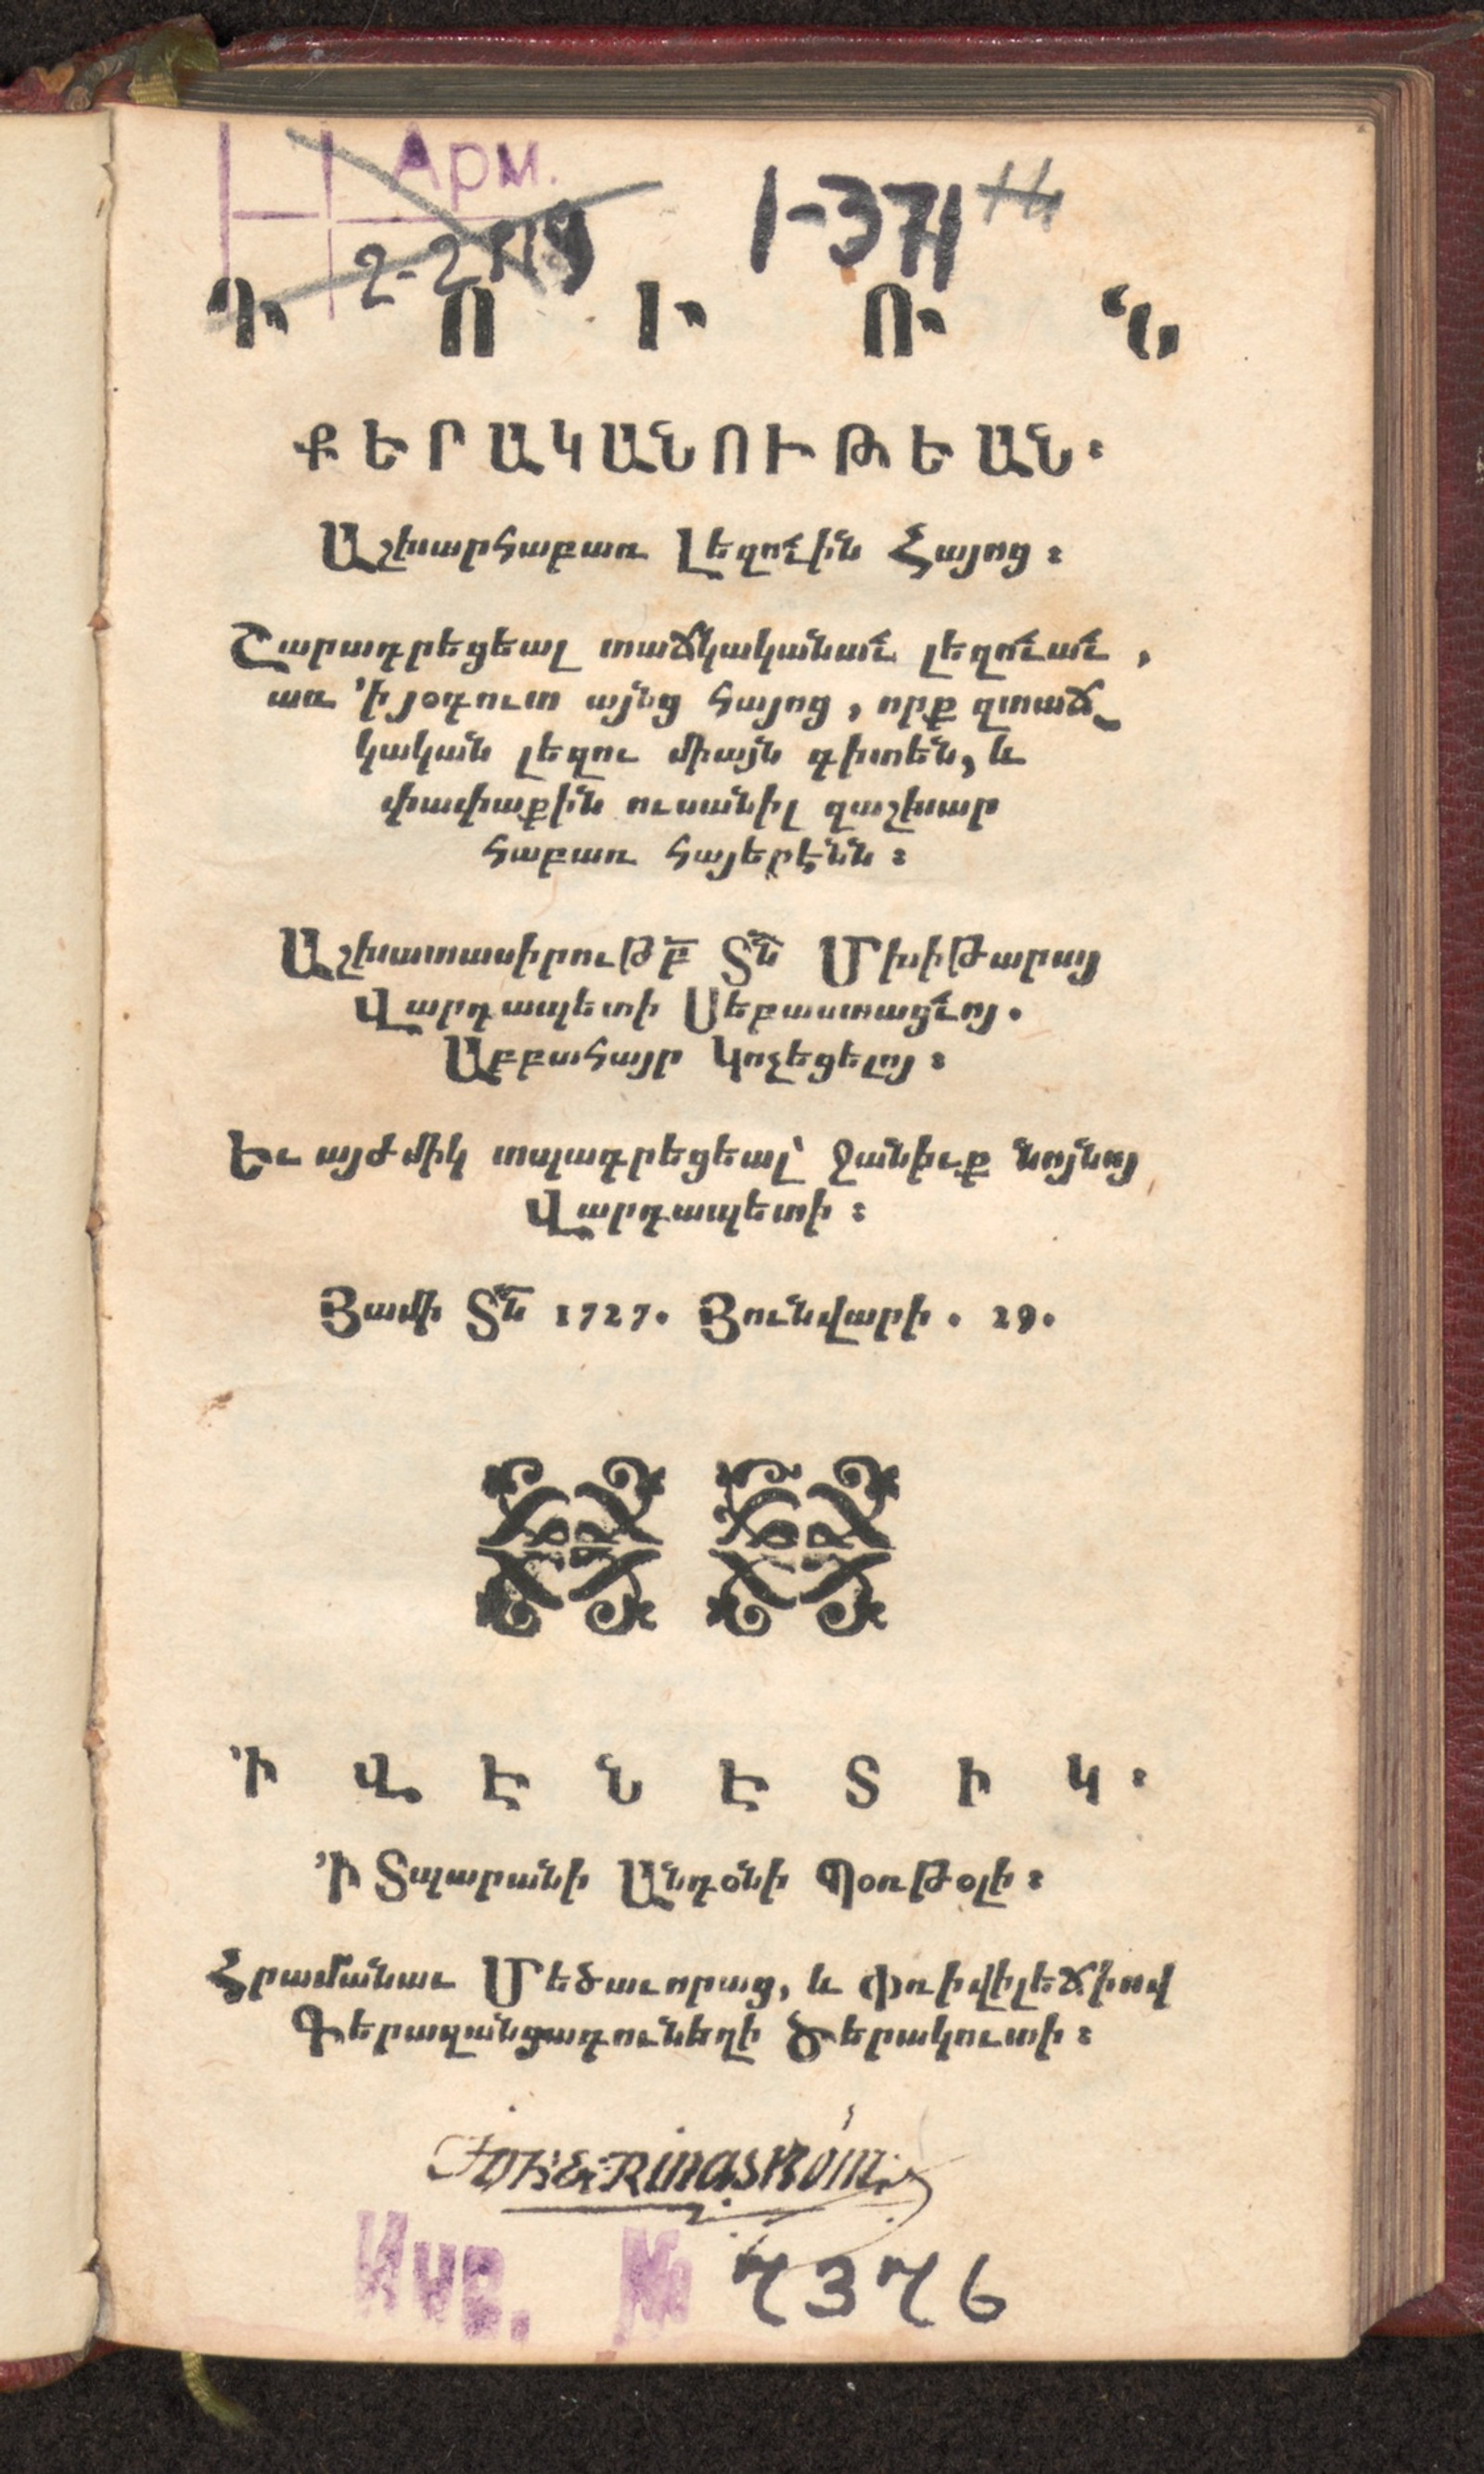 Арм.
1-371
ԴՈՒՌՆ
ՔԵՐԱԿԱՆՈՒԹԵԱՆ։
Աշխարհաբառ Լեզուին Հայոց։
Շարադրեցեալ տաճկականաւ լեզուաւ,
առ ՚ի յօգուտ այնց հայոց, որք զտաճ֊
կական լեզու միայն գիտեն, և
փափաքին ուսանիլ զաշխար
հաբառ հայերէնն։
Աշխատասիրութբ Տն Մխիթարայ
Վարդապետի Սեբաստացւոյ.
Աբբահայր Կոչեցելոյ։
Եւ այժմիկ տպագրեցեալ՝ ջանիւք նոյնոյ
Վարդապետի։
Յամի Տն 1727. Յունվարի. 29.
՚Ի ՎԷՆԷՏԻԿ։
՚Ի Տպարանի Անդօնի Պօռթօլի։
Հրամանաւ Մեծաւորաց, և փռիվիլեճիով
Գերազանցադունեղի Ծերակուտի։
Инв. № 7376